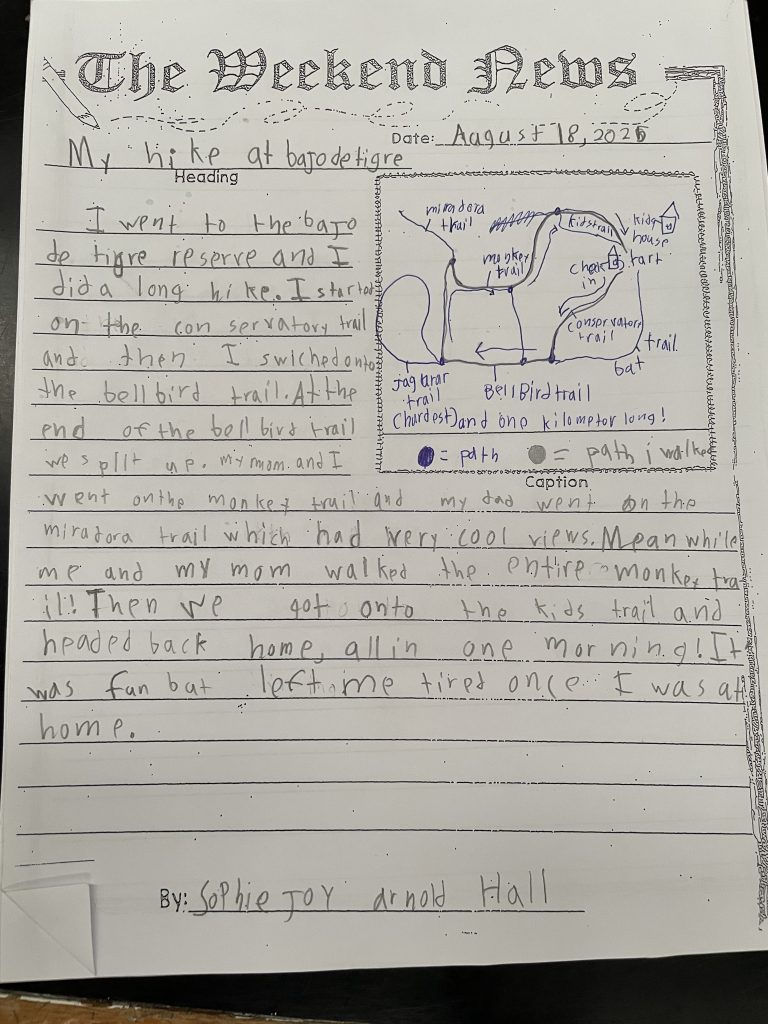 The Weekend News
Date: August 18, 2025
My hike at bajo de tigre
Heading
I went to the bajo
de tigre reserve and I
did a long hike. I started
on the conservatory trail
and then I swiched onto
the bell bird trail. At the
end of the bell bird trail
we split up. my mom and I
miradora
trail
monkey
trail
kids trail
kids
house
start
chek
in
conservatory
trail
trail
bat
Jaguarar
trail
(hardest) and one kilomotor long!
Bell Bird trail
= path
= path i walked
Caption
went on the monkey trail and my dad went on the
miradora trail which had very cool views. Mean while
me and my mom walked the entire monkey tra
il! Then we got onto the kids trail and
headed back home, all in one morning! It
was fun but left me tired once I was at
home.
By: Sophie JOY arnold Hall